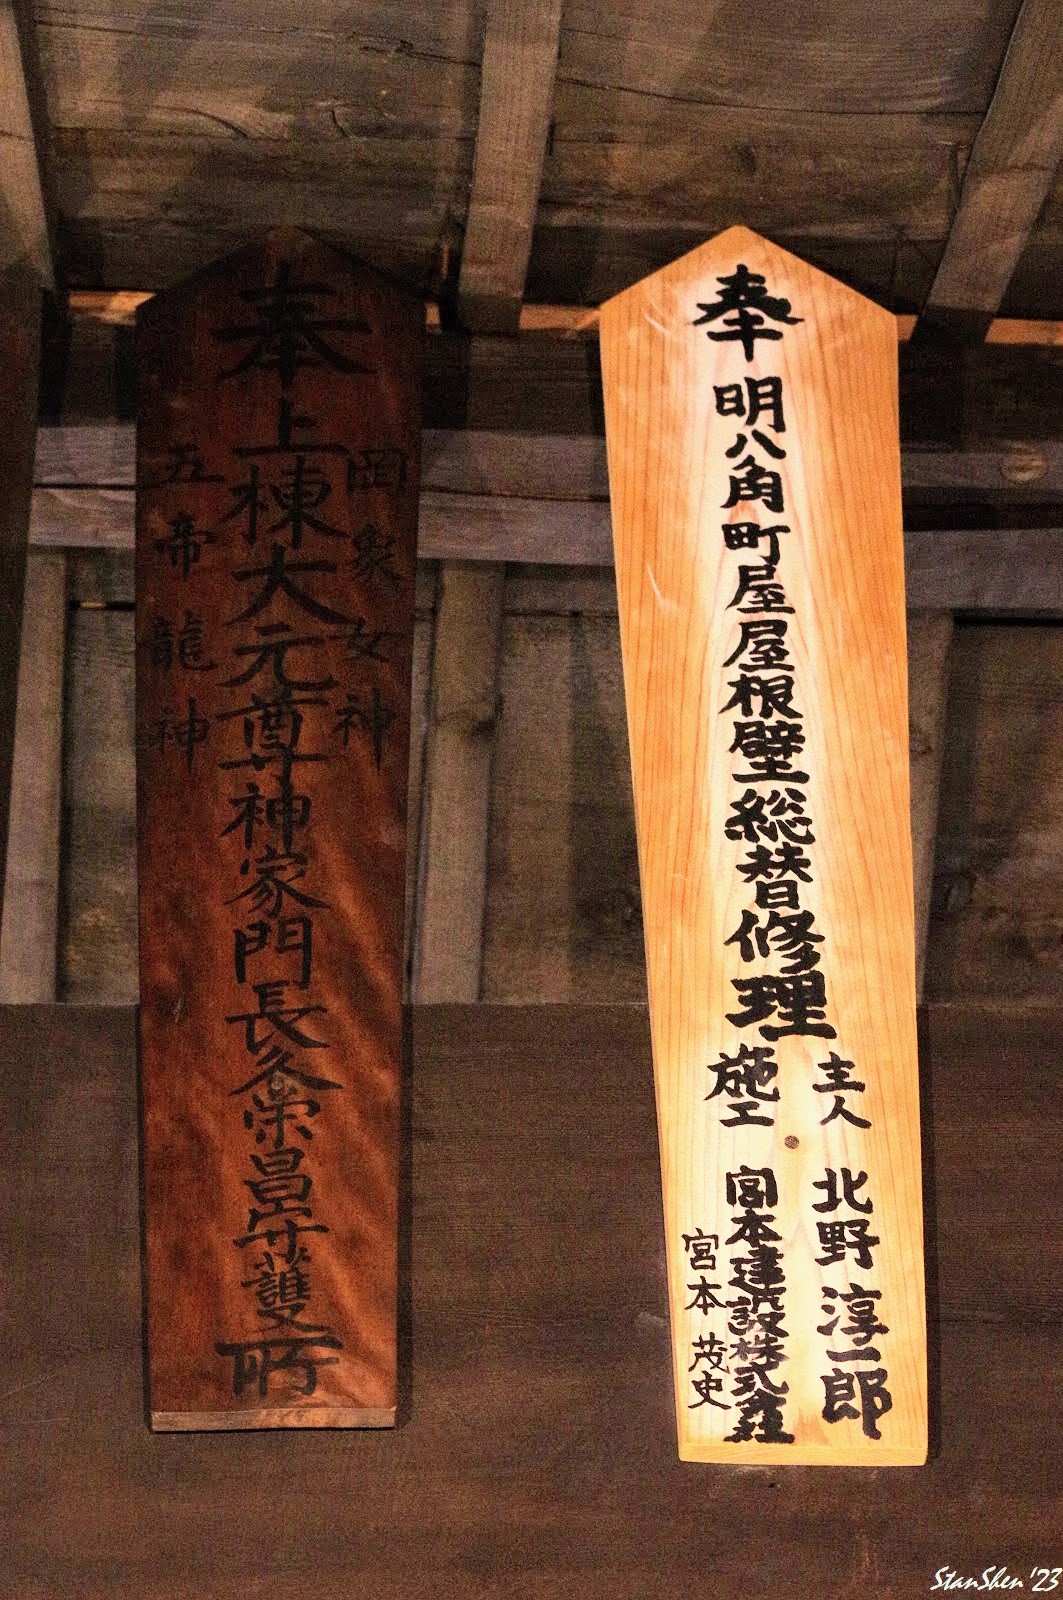 奉上棟大元尊神家門長久栄昌守護所
罔象女神
五帝龍神
奉 明八角町屋屋根壁総替修理
主人 北野淳一郎
施工 宮本建設株式会社
宮本茂史
StanShen '23